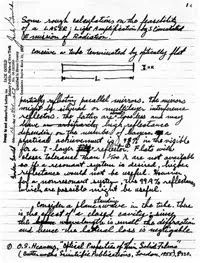 Some rough calculations on the feasibility
of a LASER: Light Amplification by Stimulated
Emission of Radiation
conceive a tube terminated by optically flat
L
partially reflecting parallel mirrors. The mirrors
might be silvered or multilayer interference
reflectors. The latter are lossless and may
have high reflectivity depending
on the number of layers. A
practical achievement is 98% in the visible
for a 7-layer reflector. Flats with
closer tolerance than 1/100 λ are not available
so if a resonant system is desired, higher
reflectance would not be useful. However
for a nonresonant system, the 99.9% reflectors
which are possible might be useful.
Consider a plane wave in the tube. There
is the effect of a closed cavity; since
the wavelength is small the diffraction
and hence the lateral loss is negligible.
O.S. Heavens, "Optical Properties of Thin Solid Films"
(Butterworths Scientific Publications, London, 1955), P.220.